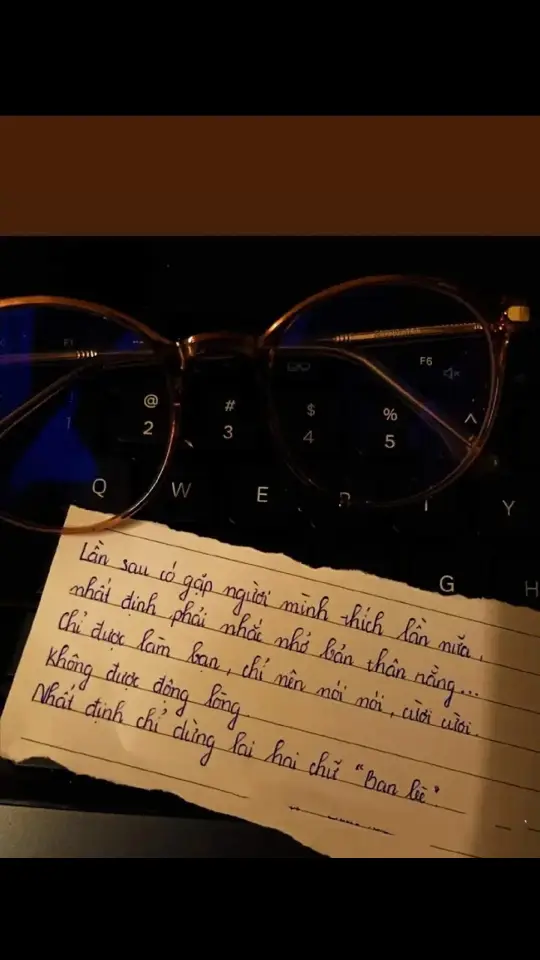 F1
F6
@ # $ % ^
2 3 4 5
Q W E R T Y
G H
Lần sau có gặp người mình thích lần nữa,
nhất định phải nhắc nhở bản thân rằng...
Chỉ được làm bạn, chỉ nên nói nói, cười cười.
Không được động lòng.
Nhất định chỉ dừng lại hai chữ "Bạn bè".